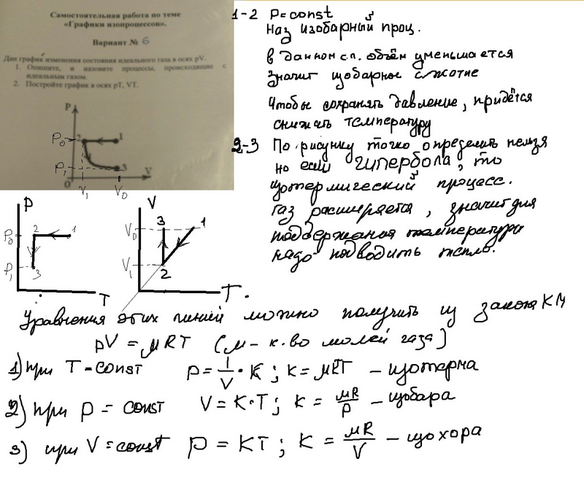 Самостоятельная работа по теме
«Графики изопроцессов».
Вариант № 6
Дан график изменения состояния идеального газа в осях pV.
1. Опишите, и назовите процессы, происходящие с
идеальным газом.
2. Постройте график в осях pT, VT.
P
P0 2 1
P1 3
0 V1 V0 V
1-2 P=const
Наз изобарный проц.
в данном сл. объём уменьшается
значит изобарное сжатие
Чтобы сохранять давление, придётся
снижать температуру
2-3 По рисунку точно определить нельзя
но если гипербола, то
изотермический процесс.
Газ расширяется, значит для
поддержания температуры
надо подводить тепло.
P
P0 2 1
P1 3
T
V
V0 3 1
V1 2
T
Уравнения этих линий можно получить из закона КМ
pV = μRT (μ - к.во молей газа)
1) при T-const p = 1/V · K ; K = μRT - изотерма
2) при p = const V = K·T ; K = μR/P - изобара
3) при V = const p = KT ; K = μR/V - изохора